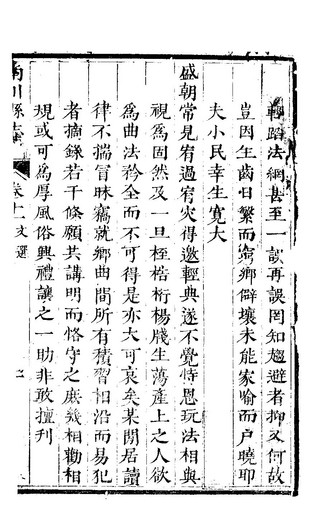 輕蹈法綱甚至一誤再誤罔知趨避者抑又何故
豈因生齒日繁而窮鄉僻壤未能家喻而户曉耶
夫小民幸生寬大
盛朝常見宥過宥灾得邀輕典遂不覺恃恩玩法相與
視為固然及一旦桎梏桁楊戕生蕩產上之人欲
為曲法矜全而不可得是亦大可哀矣某閒居讀
律不揣冒昧竊就鄉曲間所有積習相沿而易犯
者摘錄若干條願共講明而恪守之庶幾相勸相
規或可為厚風俗興禮讓之一助非敢擅刊
南川縣志
卷十一
文選